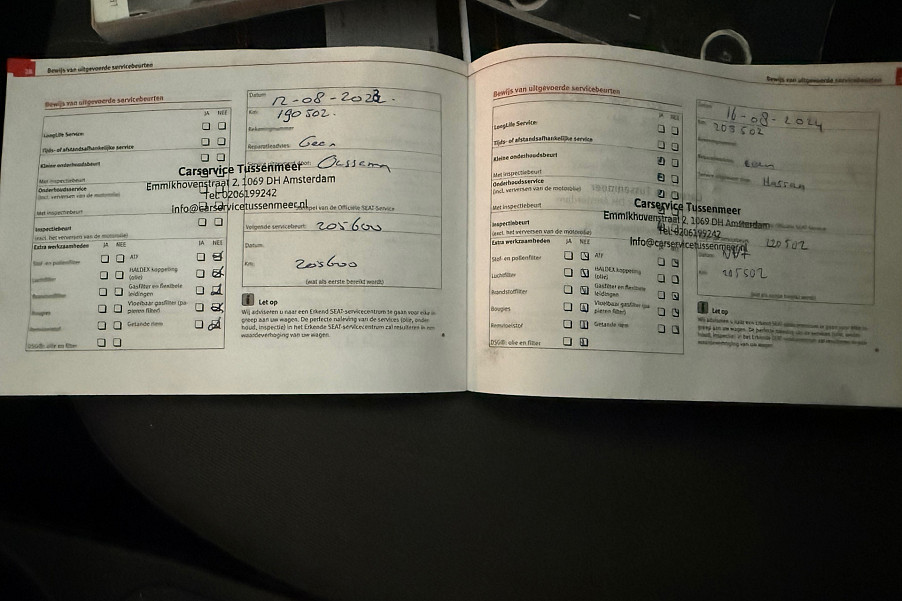 36 Bewijs van uitgevoerde servicebeurten
Bewijs van uitgevoerde servicebeurten
JA NEE
LongLife Service:
Tijds- of afstandsafhankelijke service
Kleine onderhoudsbeurt
Met inspectiebeurt
Onderhoudsservice
(incl. verversen van de motorolie)
Met inspectiebeurt
Inspectiebeurt
(excl. het verversen van de motorolie)
Extra werkzaamheden JA NEE JA NEE
Stof- en pollenfilter ATF
Luchtfilter HALDEX koppeling (olie)
Brandstoffilter Gasfilter en flexibele leidingen
Bougies Vloeibaar gasfilter (papieren filter)
Remvloeistof Getande riem
DSG®: olie en filter
Carservice Tussenmeer
Emmikhovenstraat 2, 1069 DH Amsterdam
Tel: 0206199242
info@carservicetussenmeer.nl
Datum: 12-08-2023.
Km: 190502.
Rekeningnummer
Reparatieadvies: Geen
Service uitgevoerd door: Oussema
Stempel van de Officiële SEAT-Service
Volgende servicebeurt: 205600
Datum:
Km: 205600
(wat als eerste bereikt wordt)
Let op
Wij adviseren u naar een Erkend SEAT-servicecentrum te gaan voor elke in-
greep aan uw wagen. De perfecte naleving van de services (olie, onder
houd, inspectie) in het Erkende SEAT-servicecentrum zal resulteren in een
waardeverhoging van uw wagen.
Bewijs van uitgevoerde servicebeurten
Bewijs van uitgevoerde servicebeurten
JA NEE
LongLife Service:
Tijds- of afstandsafhankelijke service
Kleine onderhoudsbeurt
Met inspectiebeurt
Onderhoudsservice
(incl. verversen van de motorolie)
Met inspectiebeurt
Inspectiebeurt
(excl. het verversen van de motorolie)
Extra werkzaamheden JA NEE
Stof- en pollenfilter ATF
Luchtfilter HALDEX koppeling (olie)
Brandstoffilter Gasfilter en flexibele leidingen
Bougies Vloeibaar gasfilter (papieren filter)
Remvloeistof Getande riem
DSG®: olie en filter
Carservice Tussenmeer
Emmikhovenstraat 2, 1069 DH Amsterdam
Tel: 0206199242
info@carservicetussenmeer.nl
Datum: 16-08-2024
Km: 203502
Hassan
220502
Datum:
Km:
(wat als eerste bereikt wordt)
Let op